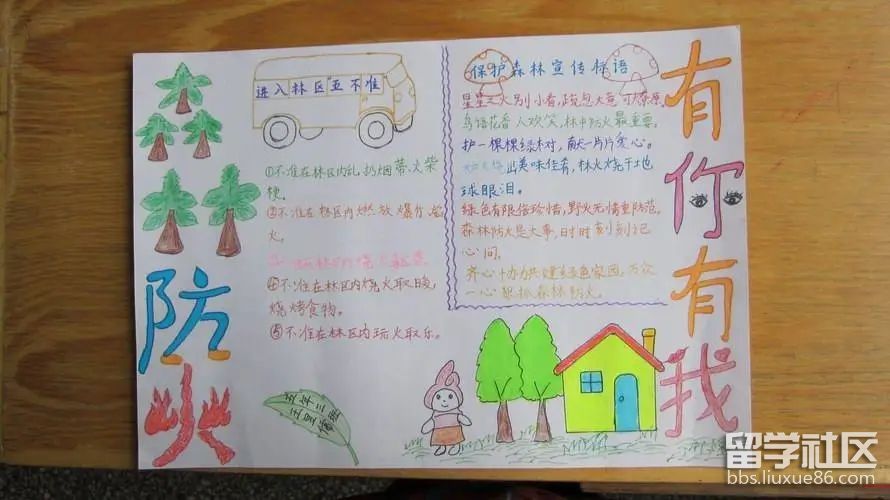 防
火
进入林区"五不准
①不准在林区内乱扔烟蒂、火柴
梗。
②不准在林区内燃放爆竹、焰
火。
④不准在林区内烧火取暖,
烧烤食物。
⑤不准在林区内玩火取乐。
保护森林宣传标语
星星之火别小看,疏忽大意可燎原
鸟语花香人欢笑,林中防火最重要。
护一棵棵绿树,献一片片爱心。
出美味佳肴,林火烧干地
球眼泪。
绿色有限倍珍惜,野火无情重防范。
森林防火是大事,时时刻刻记
心间。
齐心协力共建绿色家园,万众
一心狠抓森林防火。
有
你
有
我
五年三班
留学社区
bbs.liuxue86.com